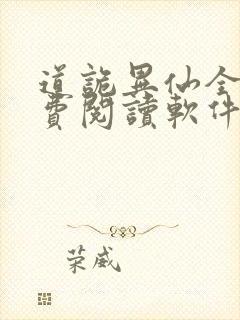 道詭異仙全
費閱讀軟件
荣威